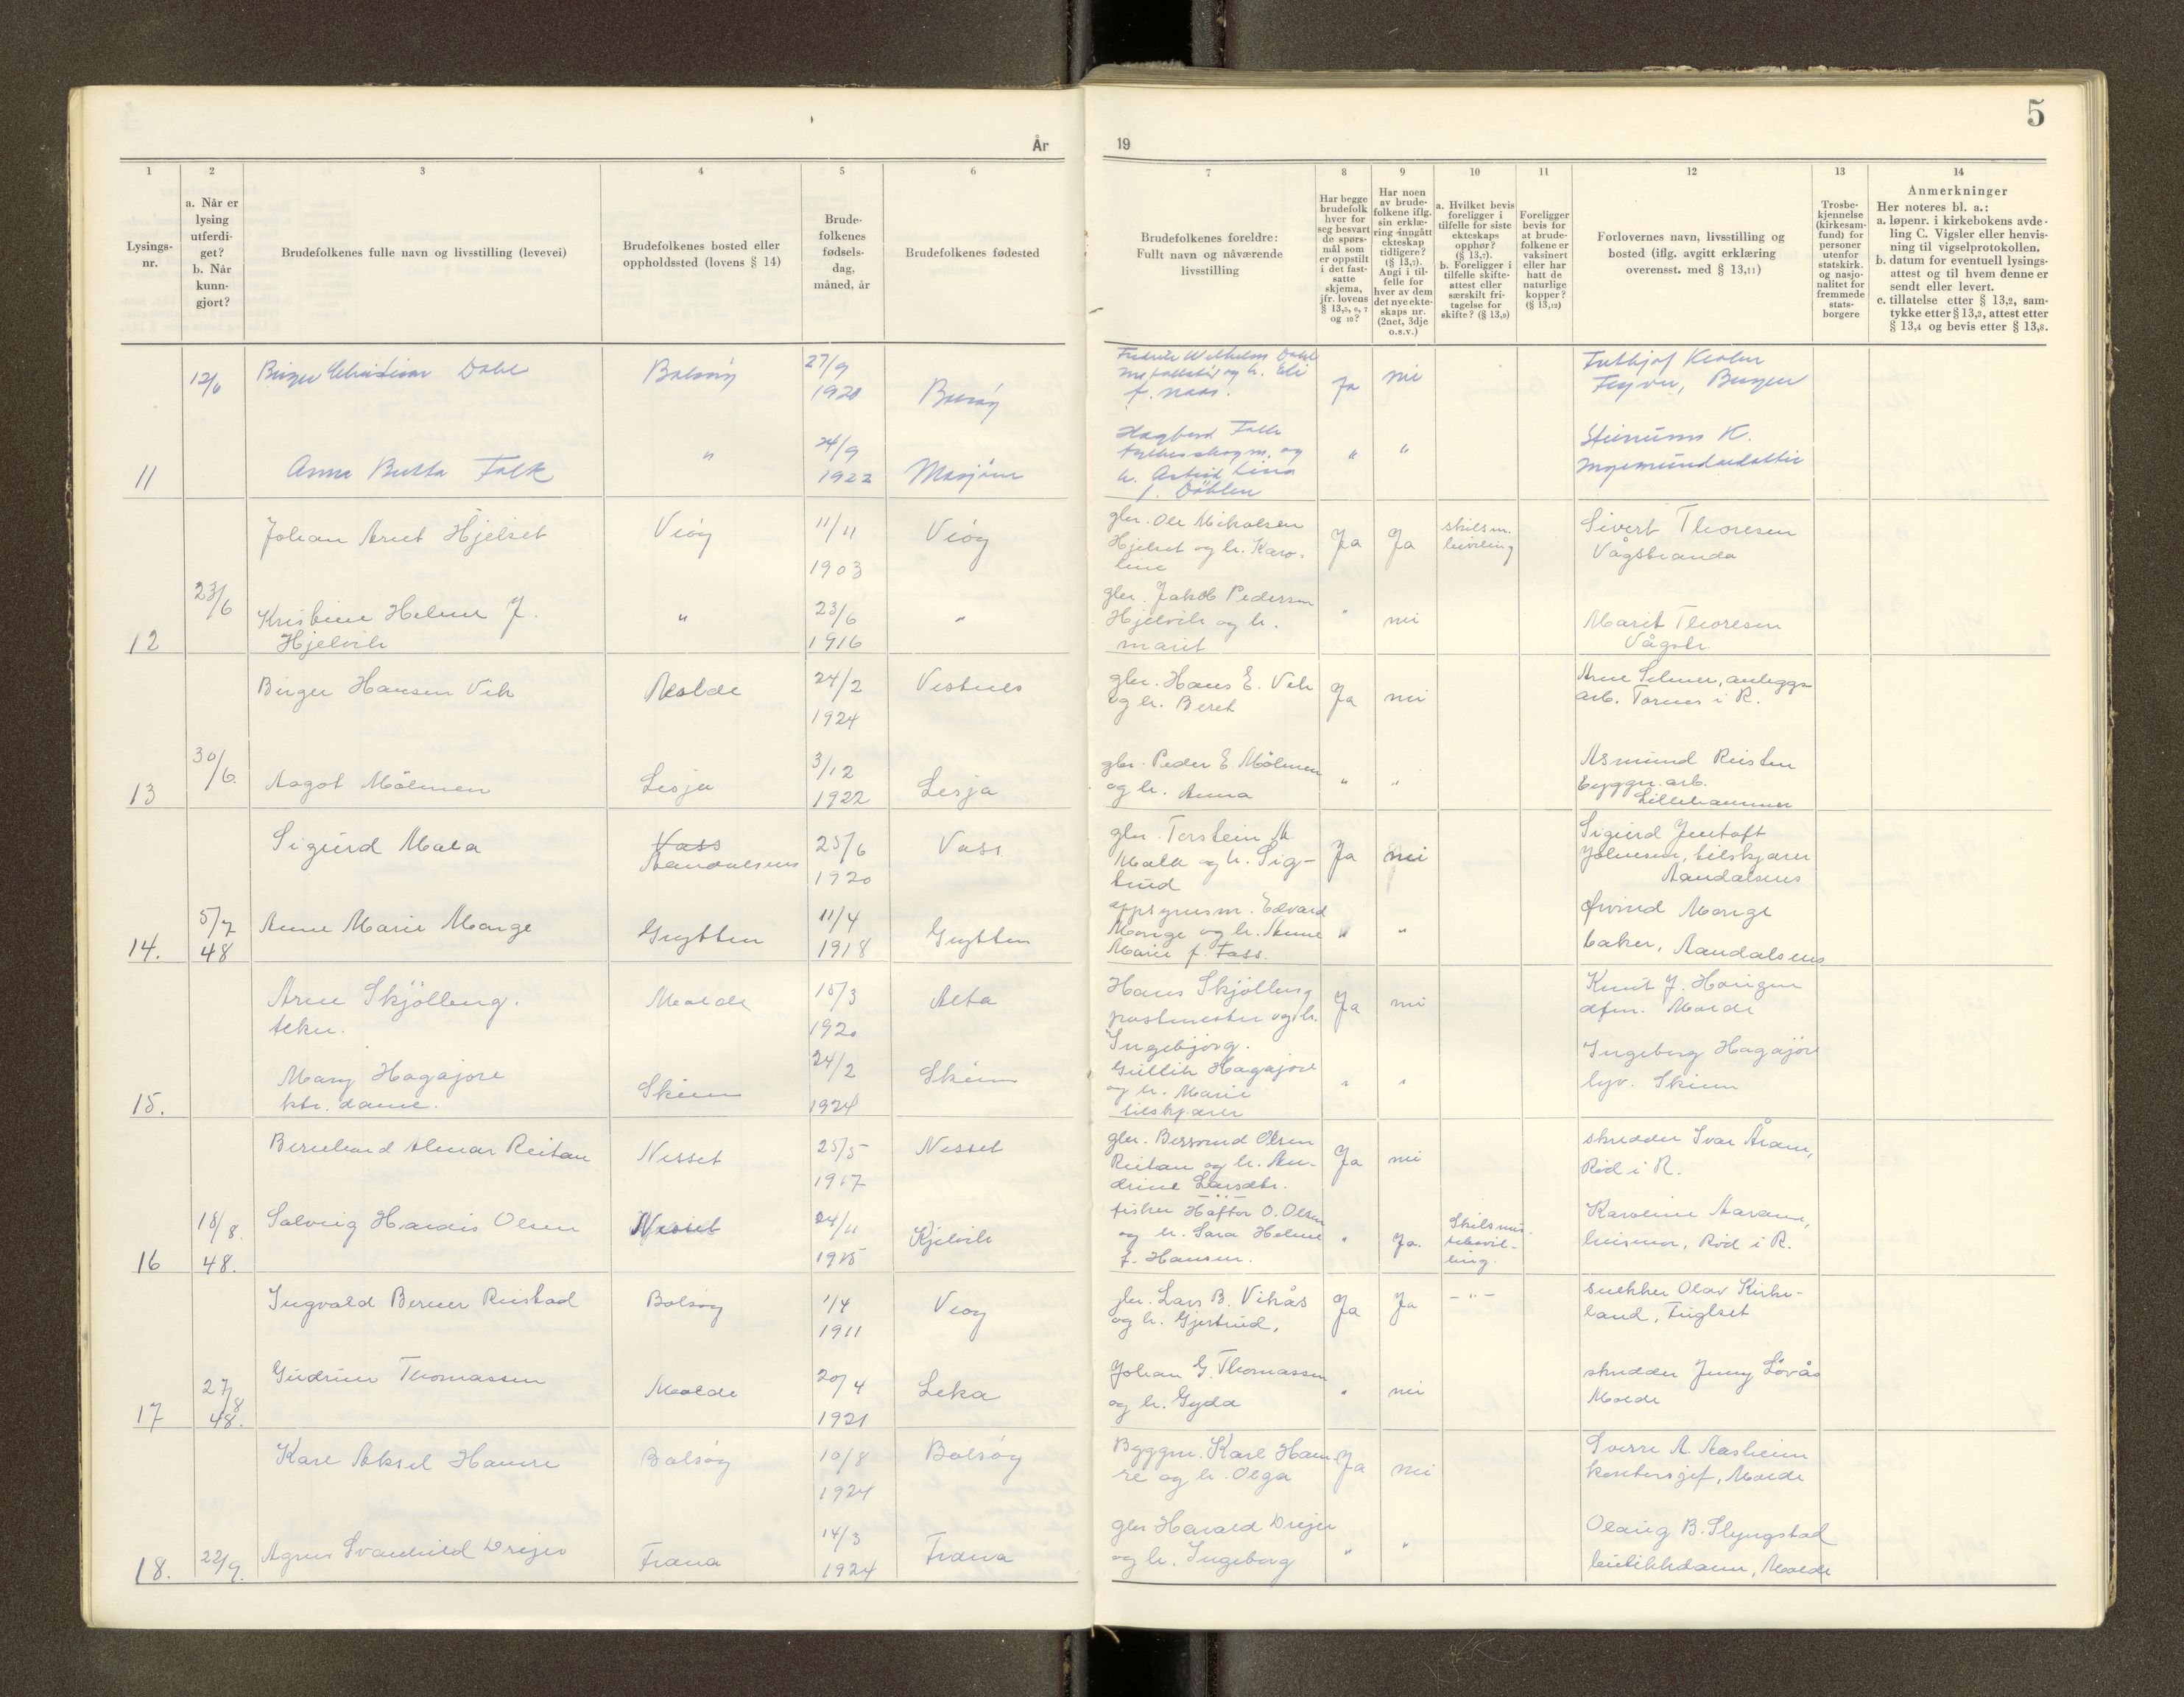 5
År
19
1
2
3
4
5
6
7
8
9
10
11
12
13
14
Lysings-
nr.
a. Når er
lysing
utferdi-
get?
b. Når
kunn-
gjort?
Brudefolkenes fulle navn og livsstilling (levevei)
Brudefolkenes bosted eller
oppholdssted (lovens § 14)
Brude-
folkenes
fødsels-
dag,
måned, år
Brudefolkenes fødested
Brudefolkenes foreldre:
Fullt navn og nåværende
livsstilling
Har begge
brudefolk
hver for
seg besvart
de spørs-
mål som
er oppstilt
i det fast-
satte
skjema,
jfr. lovens
§ 13,5, 6, 7
og 10?
Har noen
av brude-
folkene iflg.
sin erklæ-
ring inngått
ekteskap
tidligere?
(§ 13,7).
Angi i til-
felle for
hver av dem
det nye ekte-
skaps nr.
(2net, 3dje
o.s.v.)
a. Hvilket bevis
foreligger i
tilfelle for siste
ekteskaps
opphør?
(§ 13,7).
b. Foreligger i
tilfelle skifte-
attest eller
særskilt fri-
tagelse for
skifte? (§ 13,9)
Foreligger
bevis for
at brude-
folkene er
vaksinert
eller har
hatt de
naturlige
kopper?
(§ 13,12)
Forlovernes navn, livsstilling og
bosted (iflg. avgitt erklæring
overensst. med § 13,11)
Trosbe-
kjennelse
(kirkesam-
fund) for
personer
utenfor
statskirk.
og nasjo-
nalitet for
fremmede
stats-
borgere
Anmerkninger
Her noteres bl. a.:
a. løpenr. i kirkebokens avde-
ling C. Vigsler eller henvis-
ning til vigselprotokollen.
b. datum for eventuell lysings-
attest og til hvem denne er
sendt eller levert.
c. tillatelse etter § 13,2, sam-
tykke etter § 13,3, attest etter
§ 13,4 og bevis etter § 13,8.
12/6
Birger Christian Dahl
Bolsøy
27/9
1920
Fredrik Wilhelm Dahl
og h. Eli
f. Naas.
Ja
nei
Bergen
11
Anna Butta Falk
"
24/9
1922
Mosjøen
Hagbard Falk
og
h. Astrid Lina
f. Døhlen
"
"
Steinunn K.
Ingemundardottir
Johan Arnt Hjelset
Veøy
11/11
1903
Veøy
gbr. Ole Nikolsen
Hjelset og h. Karo-
line
Ja
Ja
skilsm.
bevilling
Sivert Thoresen
Vågstranda
12
23/6
Kristine Helene J.
Hjelvik
"
23/6
1916
"
gbr. Jakob Pedersen
Hjelvik og h.
Marit
"
nei
Marit Thoresen
Vågstr.
Birger Hansen Vik
Molde
24/2
1924
Vestnes
gbr. Hans E. Vik
og h. Beret
Ja
nei
Arne Selmer, anleggs
arb. Tornes i R.
13
30/6
Aagot Mölmen
Lesja
3/12
1922
Lesja
gbr. Peder E. Mölmen
og h. Anna
"
"
Asmund Reisten
byggn.arb.
Lillehammer
Sigurd Mala
Voss
Aandalsnes
25/6
1920
Voss
gbr. Torstein M
Mala og h. Sig-
trud
Ja
nei
Sigurd Jentoft
Johnsen, bilskjører
Aandalsnes
14.
5/7
48
Anne Marie Monge
Grytten
11/4
1918
Grytten
oppsynsm. Edvard
Monge og h. Anne
Marie f. Foss.
"
"
Øivind Monge
baker, Aandalsnes
Arne Skjölberg.
tekn.
Molde
15/3
1920
Alta
Hans Skjölberg
postmester og h.
Ingebjørg.
Ja
nei
Knut J. Haugen
dfm. Molde
15.
Mary Hagajore
ktr. dame.
Skien
24/2
1924
Skien
Gullik Hagajore
og h. Marie
bilskjører
"
"
Ingeborg Hagajore
Skien
Bernhard Almar Reitan
Nesset
25/5
1917
Nesset
gbr. Bersvend Olsen
Reitan og h. An-
drine Larsdtr.
Ja
nei
skredder Ivar Åram,
Rød i R.
16
18/8.
48.
Solveig Hardis Olsen
Nesset
24/11
1915
Kjelvik
fisker Haftor O. Olsen
og h. Sara Helene
f. Hansen.
"
Ja.
Skilsmis
sebevil-
ling.
Karoline Aaram,
husmor, Rød i R.
Ingvald Berner Reistad
Bolsøy
1/4
1911
Veøy
gbr. Lars B. Vikås
og h. Gjertrud,
Ja
Ja
- " -
snekker Olav Kirke-
land, Fuglset
17
27/8
48.
Gudrun Thomassen
Molde
20/4
1921
Leka
Johan G. Thomassen
og h. Gyda
"
nei
skredder Jenny Løvås
Molde
Kåre Aksel Hamre
Bolsøy
10/8
1924
Bolsøy
Byggm. Karl Ham-
re og h. Olga
Ja
nei
Sverre A. Aasheim
kontorsjef, Molde
18.
22/9.
Agnes Svanhild Drejer
Frana
14/3
1924
Frana
gbr Harald Drejer
og h. Ingeborg
"
"
Olaug B. Slyngstad
butikkdame, Molde